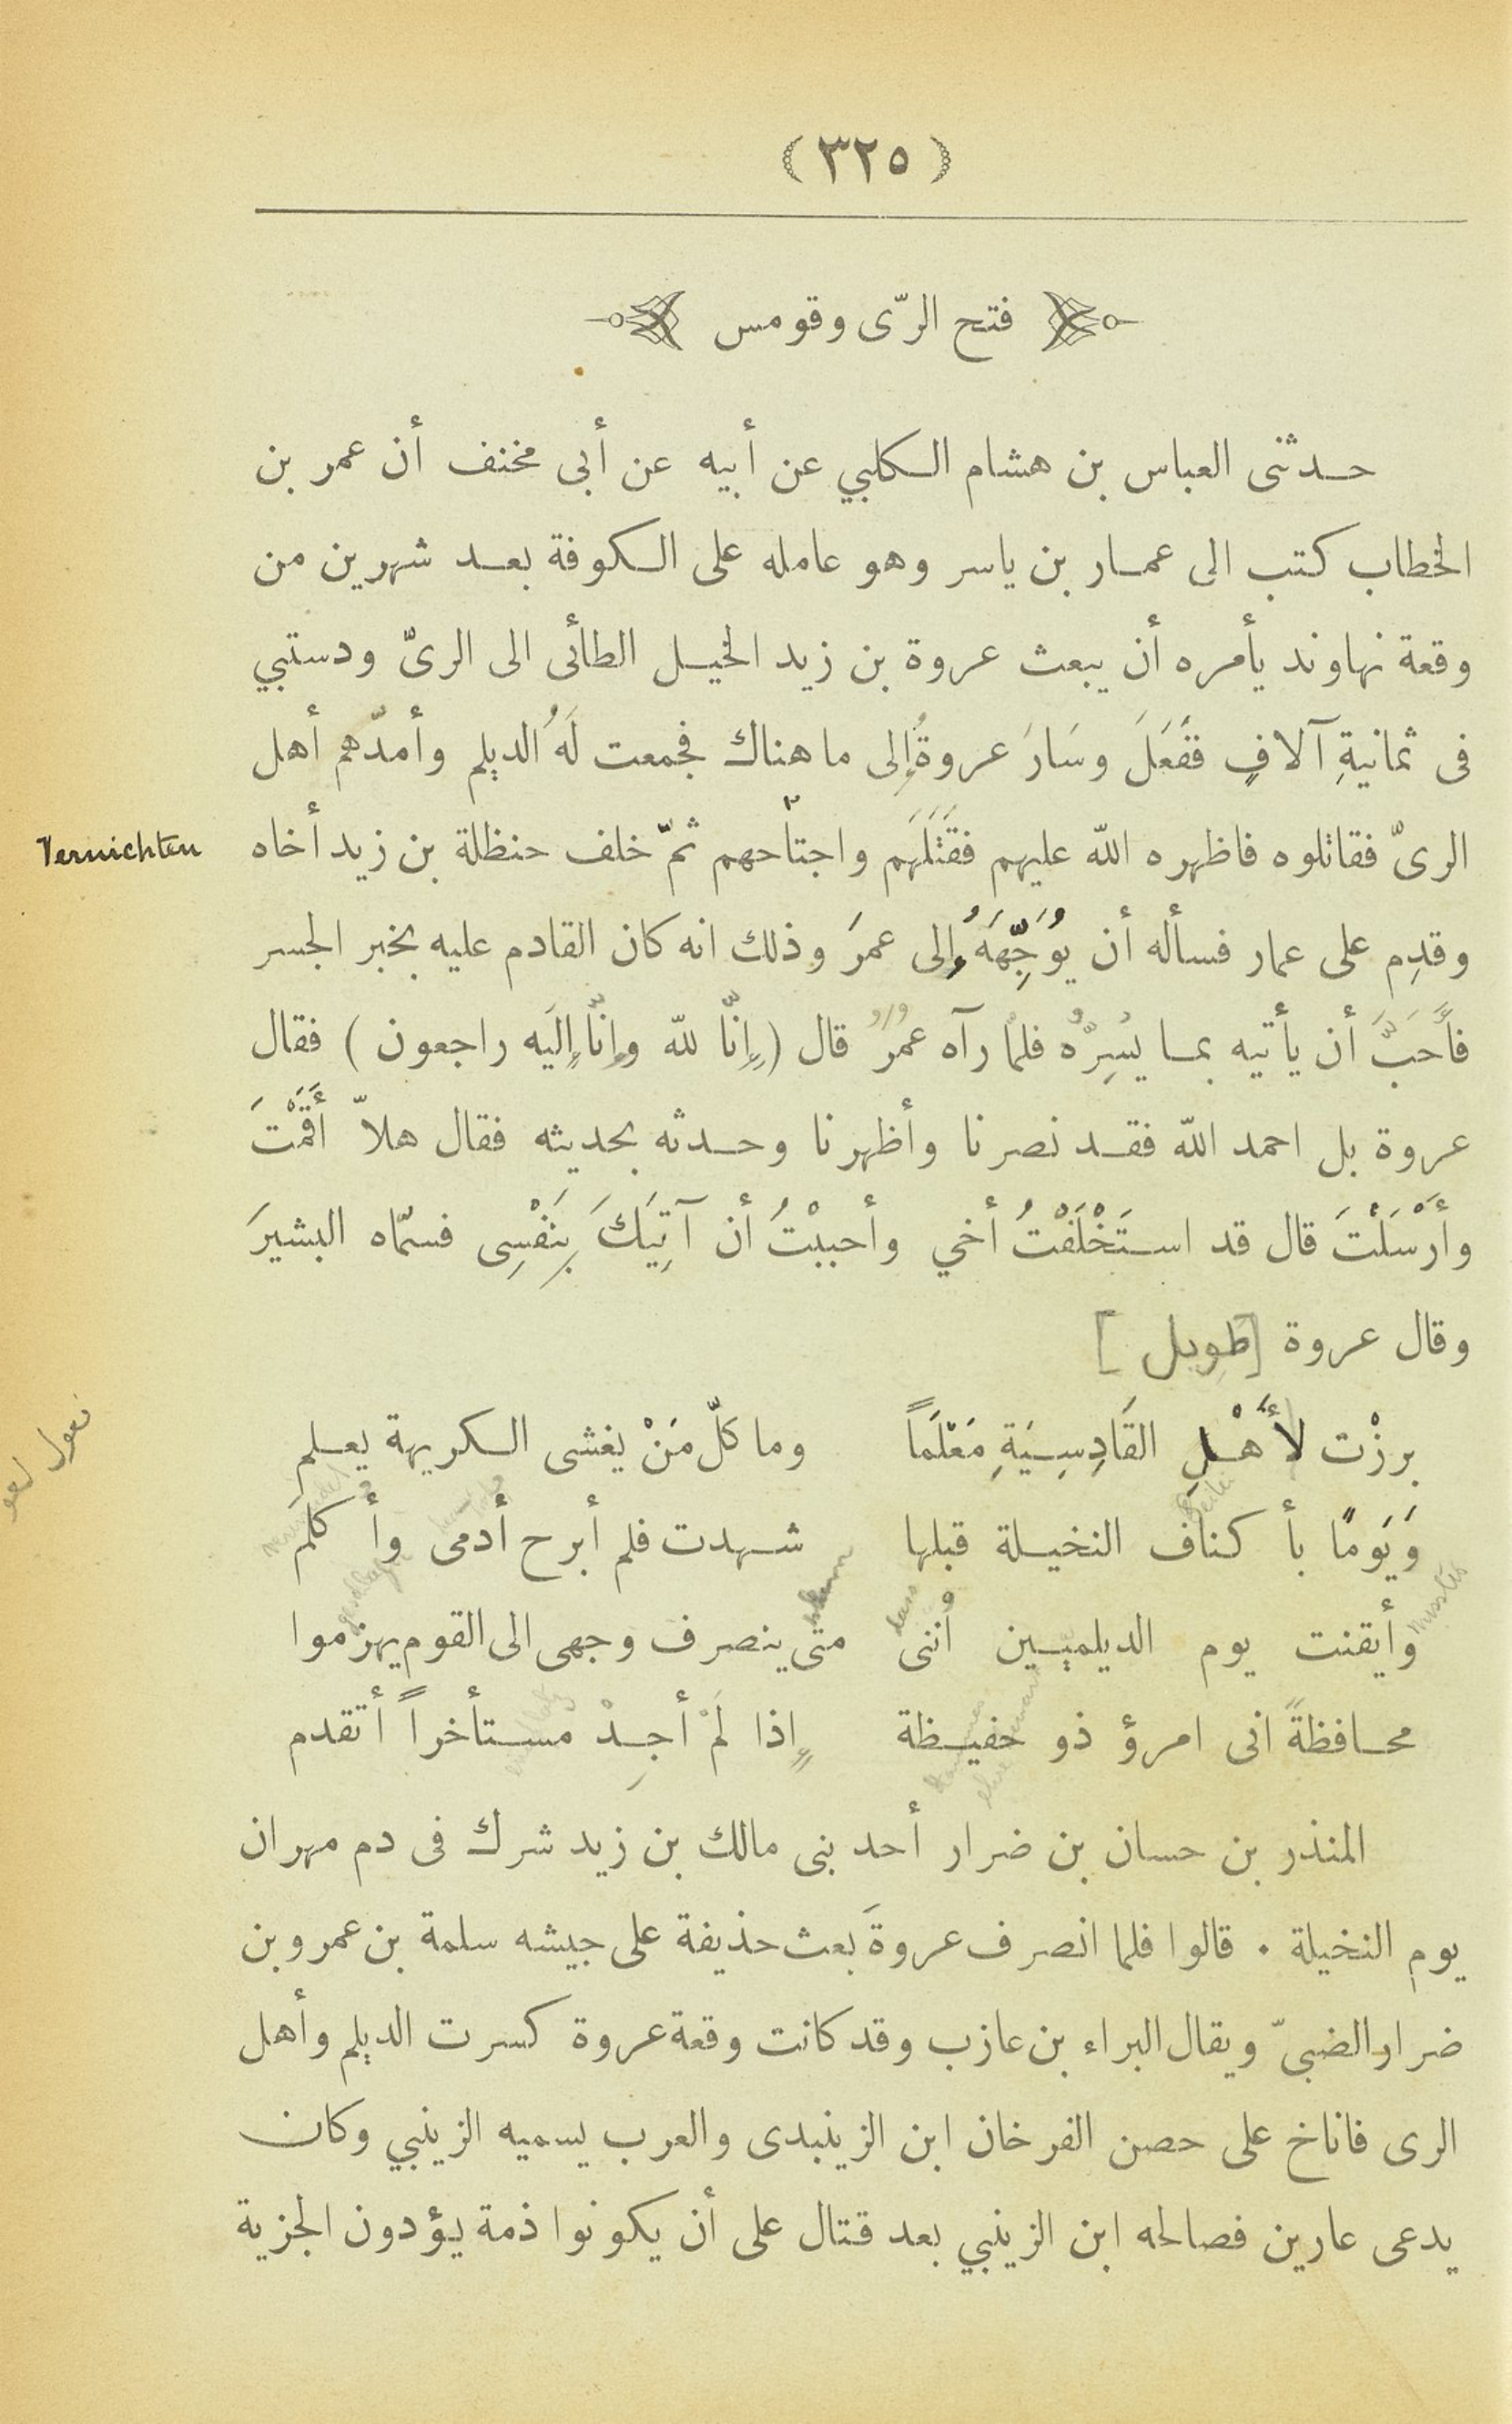 (٣٢٥)
فتح الرّى وقومس
حدثنى العباس بن هشام الكلبي عن أبيه عن أبى مخنف أن عمر بن
الخطاب كتب الى عمار بن ياسر وهو عامله على الكوفة بعد شهرين من
وقعة نهاوند يأمره أن يبعث عروة بن زيد الخيل الطأئى الى الرىّ ودستبي
فى ثمانيةِ آلافٍ ففَعَلَ وسَارَ عروةُ إِلى ما هناك فجمعت لَهُ الديلم وأمدّهم أهل
الرىّ فقاتلوه فاظهره الله عليهم فقَتَلَهَم واجتاحهم ثمّ خلف حنظلة بن زيد أخاه
Vernichten
وقدِم على عمار فسأله أن يُوَجِّهَهُ إِلى عمرَ وذلك انه كان القادم عليه بخبر الجسر
فأَحَبَّ أن يأتيه بما يُسِرُّه فلمّا رآه عمرُ قال (إِنّا لله وإِنّا إِلَيه راجعون) فقال
عروة بل احمد الله فقد نصرنا وأظهرنا وحدثه بحديثه فقال هلاّ أَقَمْتَ
وأَرْسَلْتَ قال قد استَخْلَفْتُ أخي وأحببْتُ أن آتِيَكَ بِنَفْسِى فسمّاه البشيرَ
وقال عروة [طويل]
برزْت لأَهْلِ القَادِسِيَةِ مَعْلَماً وما كلّ مَنْ يغشى الكريهة يعلم
وَيَومًا بأكناف النخيلة قبلها شهدت فلم أبرح أدمى وأكلَم
وأيقنت يوم الديلميين أُننى متى ينصرف وجهى الى القوم يهزموا
محافظةً انى امرؤ ذو حفيظة إِذا لَمْ أجِدْ مستأخراً أتقدم
المنذر بن حسان بن ضرار أحد بنى مالك بن زيد شرك فى دم مهران
يوم النخيلة . قالوا فلما انصرف عروةَ بعث حذيفة على جيشه سلمة بن عمرو بن
ضرار الضبىّ ويقال البراء بن عازب وقد كانت وقعة عروة كسرت الديلم وأهل
الرى فاناخ على حصن الفرخان ابن الزينبدى والعرب يسميه الزينبي وكان
يدعى عارين فصالحه ابن الزينبي بعد قتال على أن يكونوا ذمة يؤدون الجزية